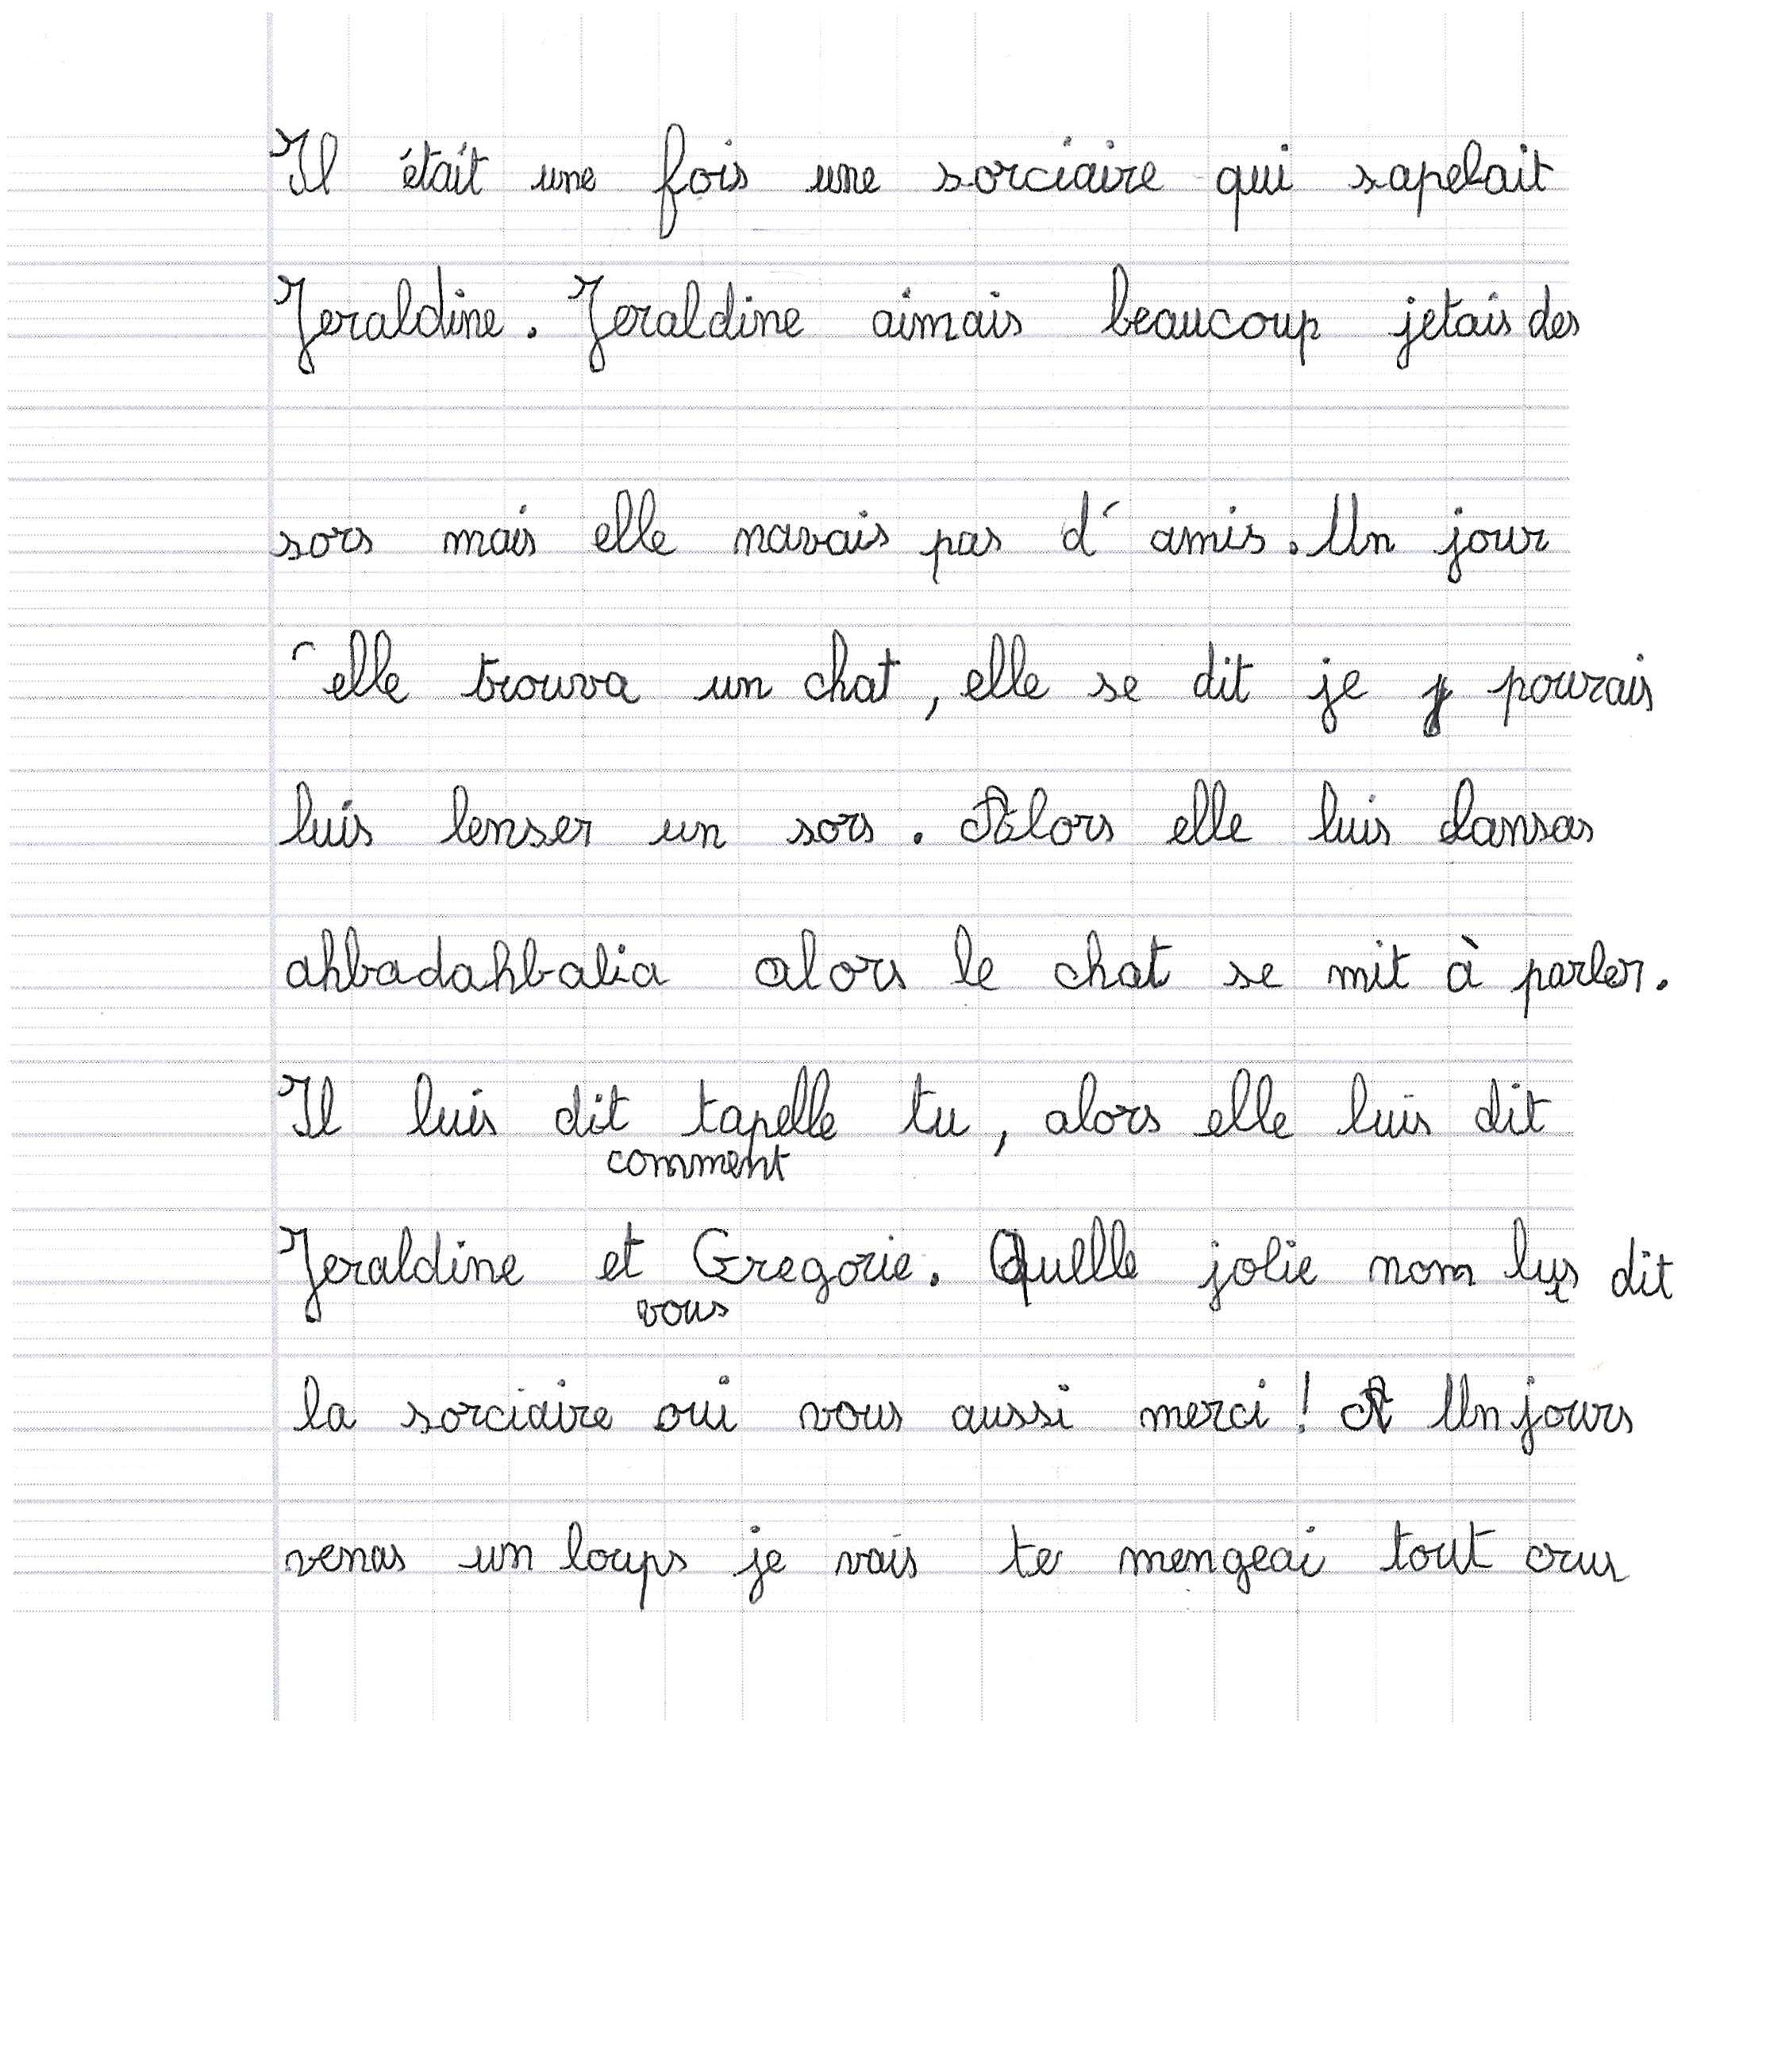 Il était une fois une sorciaire qui sapelait
Jeraldine. Jeraldine aimais beaucoup jetais des
sors mais elle navais pas d' amis. Un jour
elle trouva un chat, elle se dit je pourais
luis lenser un sors. Alors elle luis lansas
ahbadahbalia alors le chat se mit à parler.
Il luis dit tapelle tu, alors elle luis dit
comment
Jeraldine et Gregorie. Quelle jolie nom luis dit
vous
la sorciaire oui vous aussi merci ! Un jours
venas un loups je vais te mengeai tout crus